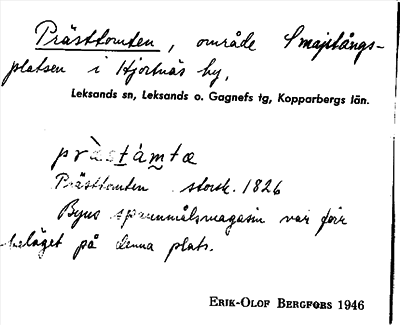 Prästtomten, område
platsen i Hjortnäs by,
Leksands sn, Leksands o. Gagnefs tg, Kopparbergs län.
pràstámtæ
Prästtomten storsk. 1826
Byns spannmålsmagasin var förr
beläget på denna plats.
ERIK-OLOF BERGFORS 1946